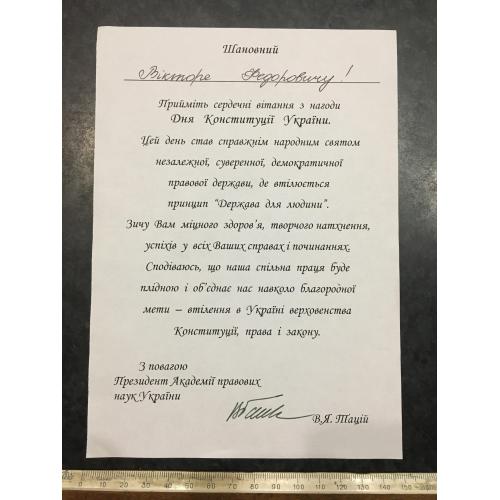 Шановний
Вікторе Федоровичу!
Прийміть сердечні вітання з нагоди
Дня Конституції України.
Цей день став справжнім народним святом
незалежної, суверенної, демократичної
правової держави, де втілюється
принцип "Держава для людини".
Зичу Вам міцного здоров'я, творчого натхнення,
успіхів у всіх Ваших справах і починаннях.
Сподіваюсь, що наша спільна праця буде
плідною і об'єднає нас навколо благородної
мети – втілення в Україні верховенства
Конституції, права і закону.
З повагою
Президент Академії правових
наук України
В.Я. Тацій
0 10 20 30 40 50 60 70 80 90 100 110 120 130 140 150